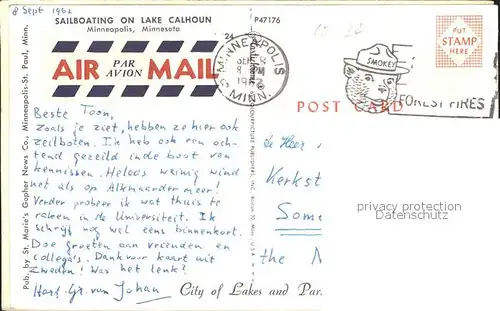 8 Sept 1962
SAILBOATING ON LAKE CALHOUN
Minneapolis, Minnesota
P47176
24
AIR PAR AVION MAIL
MINNEAPOLIS
1962
MINN.
SMOKEY
FOREST FIRES
PUT
STAMP
HERE
POST CARD
Beste Toon,
Zoals je ziet, hebben ze hier ook
zeilboten. Ik heb ook een och-
tend gezeild in de boot van
kennissen. Helaas weinig wind
net als op Alkmaardermeer!
Verder probeer ik wat thuis te
raken in de Universiteit. Ik
schrijf nog wel eens binnenkort.
Doe groeten aan vrienden en
collega's. Dank voor kaart uit
Zweden! Was het leuk?
Hart. gr. van Johan
de Heer
Kerkst
Some
the N
privacy protection
Datenschutz
City of Lakes and Par
Pub. by St. Marie's Gopher News Co., Minneapolis-St. Paul, Minn.